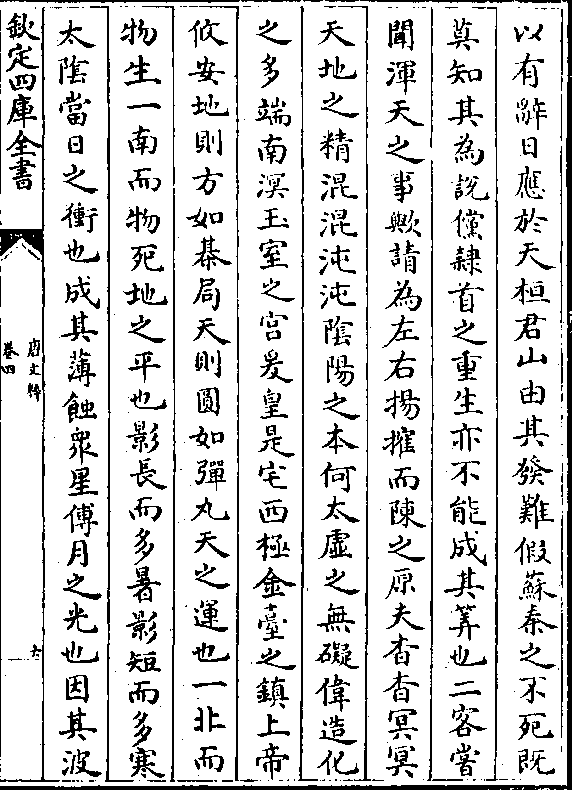 以有辭日應於天桓君山由其發難假蘇秦之不死既
莫知其為說儻隷首之重生亦不能成其筭也二客嘗
聞渾天之事歟請為左右揚搉而陳之原夫杳杳冥冥
天地之精混混沌沌隂陽之本何太虛之無礙偉造化
之多端南溟玉室之宫爰皇是宅西極金臺之鎮上帝
攸安地則方如棊局天則圓如彈丸天之運也一北而
物生一南而物死地之平也影長而多暑影短而多寒
太隂當日之衝也成其薄蝕衆星傅月之光也因其波
欽定四庫全書
唐文粹
卷四
六